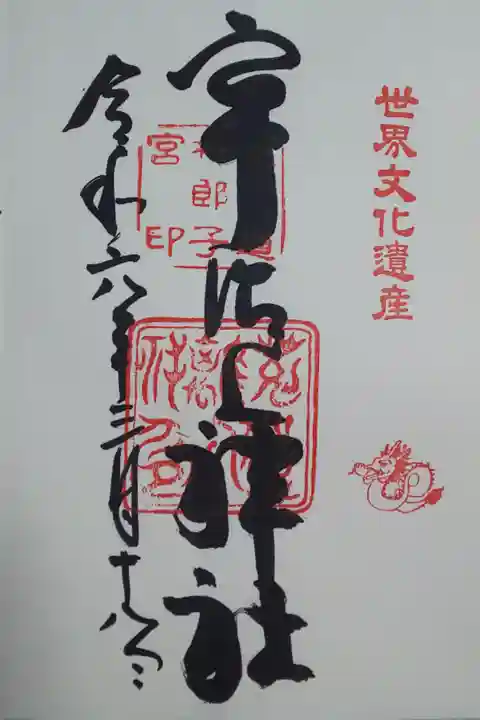 世界文化遺産
宇治上神社
郎子
宮印
令和六年三月十八日